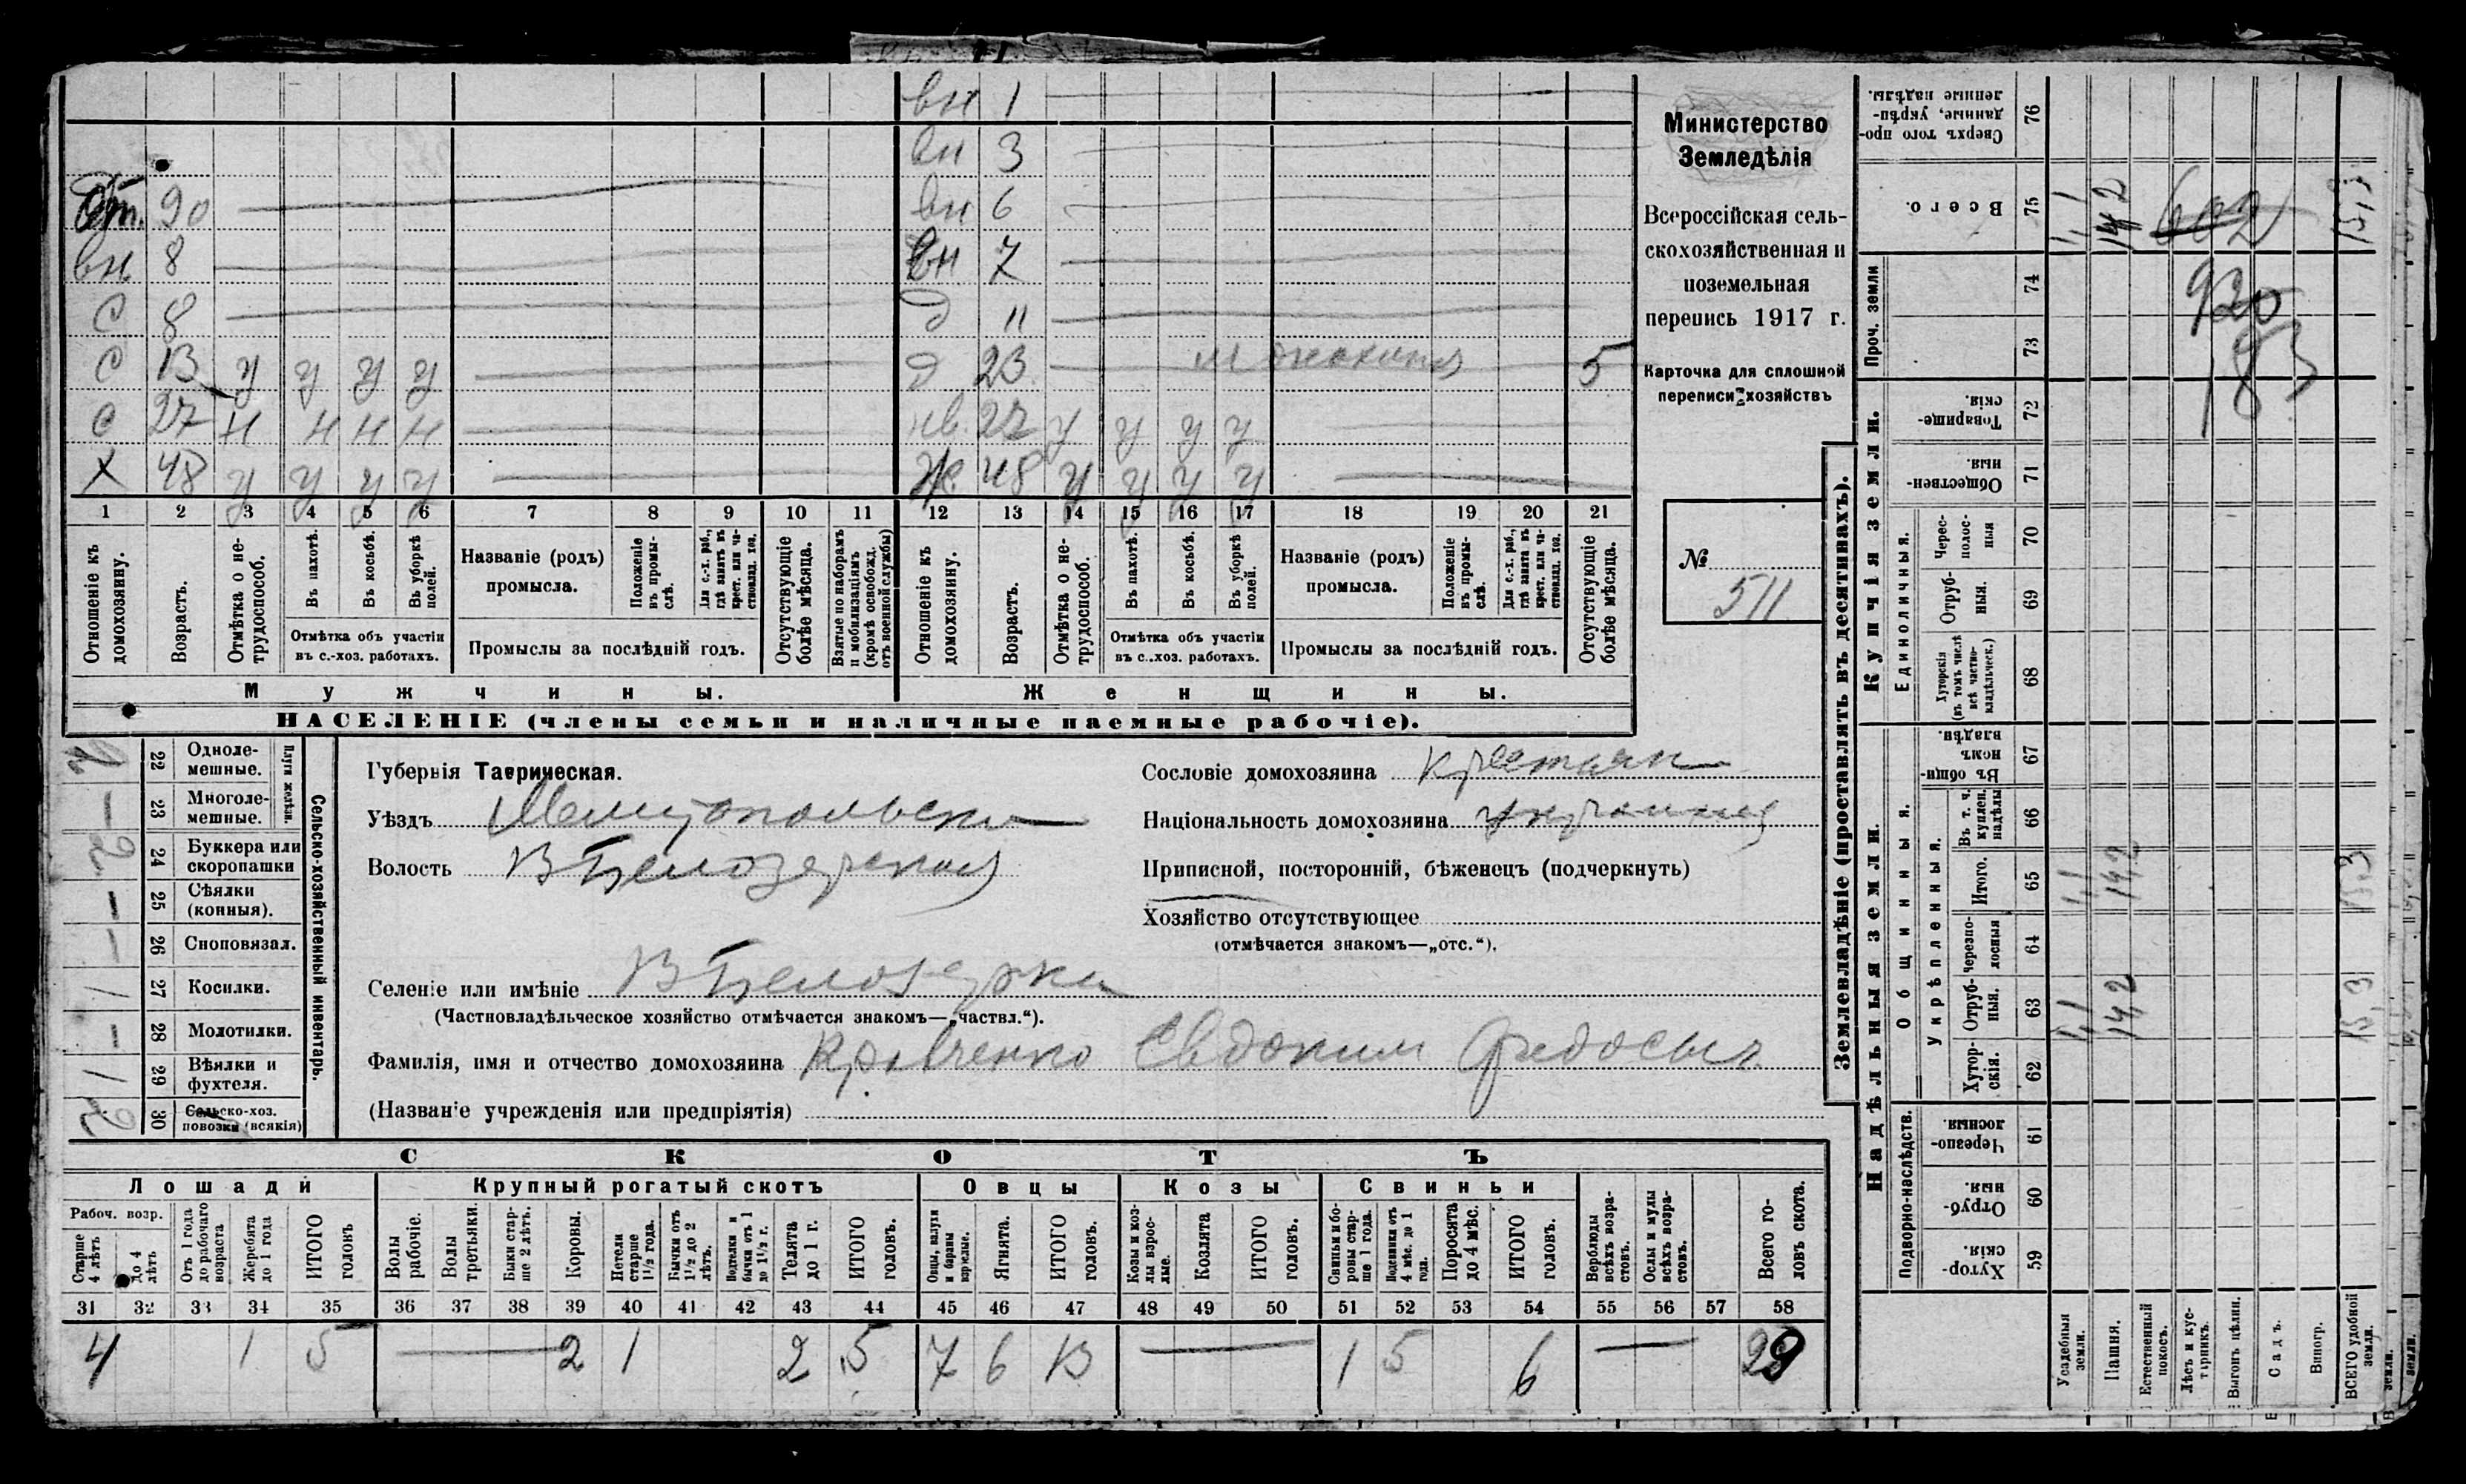 вн 1
вн 3
От. 90 вн 6
вн 8 вн 7
С 8 д 11
С 13 у у у у д 23 5
С 27 н н н н нв. 27 у у у у
Х 48 у у у у Ж 48 у у у у
1 2 3 4 5 6 7 8 9 10 11 12 13 14 15 16 17 18 19 20 21
Отношеніе къ домохозяину.
Возрастъ.
Отмѣтка о не-трудоспособ.
Въ пахотѣ.
Въ косьбѣ.
Въ уборкѣ полей.
Отмѣтка объ участіи
въ с.-хоз. работахъ.
Названіе (родъ)
промысла.
Положеніе въ промы-слѣ.
Для с.-х. раб., гдѣ занятъ въ крест. или ча-стновлад. хоз.
Промыслы за послѣдній годъ.
Отсутствующіе болѣе мѣсяца.
Взятые по наборамъ и мобилизаціямъ (кромѣ освобожд. отъ военной службы)
Отношеніе къ домохозяину.
Возрастъ.
Отмѣтка о не-трудоспособ.
Въ пахотѣ.
Въ косьбѣ.
Въ уборкѣ полей.
Отмѣтка объ участіи
въ с.-хоз. работахъ.
Названіе (родъ)
промысла.
Положеніе въ промы-слѣ.
Для с.-х. раб., гдѣ занятъ въ крест. или ча-стновлад. хоз.
Промыслы за послѣдній годъ.
Отсутствующіе болѣе мѣсяца.
Мужчины. Женщины.
НАСЕЛЕНІЕ (члены семьи и наличные наемные рабочіе).
Министерство
Земледѣлія
Всероссійская сель-
скохозяйственная и
поземельная
перепись 1917 г.
Карточка для сплошной
переписи хозяйствъ
№
511
22 Однолемешные.
23 Многолемешные.
Плуги желѣзн.
2 24 Буккера или скоропашки
25 Сѣялки (конныя).
26 Сноповязал.
1 27 Косилки.
28 Молотилки.
1 29 Вѣялки и фухтеля.
2 30 Сельско-хоз. повозки (всякія)
Сельско-хозяйственный инвентарь.
Губернія Таврическая.
Уѣздъ Мелитопольски
Волость В Белозерская
Сословіе домохозяина крестьян
Національность домохозяина
Приписной, посторонній, бѣженецъ (подчеркнуть)
Хозяйство отсутствующее
(отмѣчается знакомъ—„отс.“).
Селеніе или имѣніе В Белозерка
(Частновладѣльческое хозяйство отмѣчается знакомъ—„частвл.“).
Фамилія, имя и отчество домохозяина Кравченко Евдоким Федосьич
(Названіе учрежденія или предпріятія)
СКОТЪ
Лошади Крупный рогатый скотъ Овцы Козы Свиньи
Рабоч. возр.
Старше 4 лѣтъ
до 4 лѣтъ
Отъ 1 года до рабочаго возраста
Жеребята до 1 года
ИТОГО головъ
Волы рабочіе.
Волы третьяки.
Быки стар-ше 2 лѣтъ.
Коровы.
Нетели старше 1½ года.
Бычки отъ 1½ до 2 лѣтъ.
Подтелки и бычки отъ 1 до 1½ г.
Телята до 1 г.
ИТОГО головъ.
Овцы, валухи и бараны взрослые.
Ягнята.
ИТОГО головъ.
Козы и коз-лы взрос-лые.
Козлята
ИТОГО головъ.
Свиньи и бо-ровы стар-ше 1 года.
Подсвинки отъ 4 мѣс. до 1 года.
Поросята до 4 мѣс.
ИТОГО головъ.
Верблюды всѣхъ возра-стовъ.
Ослы и мулы всѣхъ возра-стовъ.
Всего го-ловъ скота.
31 32 33 34 35 36 37 38 39 40 41 42 43 44 45 46 47 48 49 50 51 52 53 54 55 56 57 58
4 1 5 2 1 2 5 7 6 13 1 5 6 29
Землевладѣніе (проставлять въ десятинахъ).
Купчія земли.
Надѣльныя земли.
Сверхъ того про-данные, укрѣп-ленные надѣлы. 76
Всего. 75 1,1 14,2 602 15,3
Проч. земли 74 73
920
183
Товарище-скія. 72
Обществен-ныя. 71
Единоличныя.
Черес-полос-ныя 70
Отруб-ныя. 69
Хуторскія (въ томъ числѣ всѣ частно-владѣльческ.) 68
Общинныя.
Въ общин-номъ владѣн. 67
Укрѣпленныя.
Въ т. ч. куплен. надѣлы 66
Итого. 65 1,1 14,2 15,3
Черезпо-лосныя 64
Отруб-ныя. 63 1,1 14,2 15,3
Хутор-скія. 62
Подворно-наслѣдств.
Черезпо-лосныя. 61
Отруб-ныя. 60
Хутор-скія. 59
Усадебныя земли.
Пашня.
Естественный покосъ.
Лѣсъ и кус-тарникъ.
Выгонъ цѣлин.
Садъ.
Виногр.
ВСЕГО удобной земли.
земли.
земли.